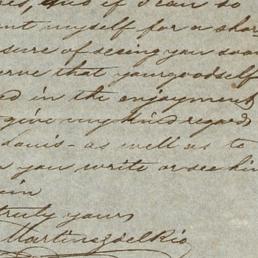 and if I can so
myself for a shor
sure of seeing you soon
erve that yourgoodself
d in the enjoyment
give my kind regards
Louis - as well as to
you write or see him
ain
truly yours
Martinezdelrio